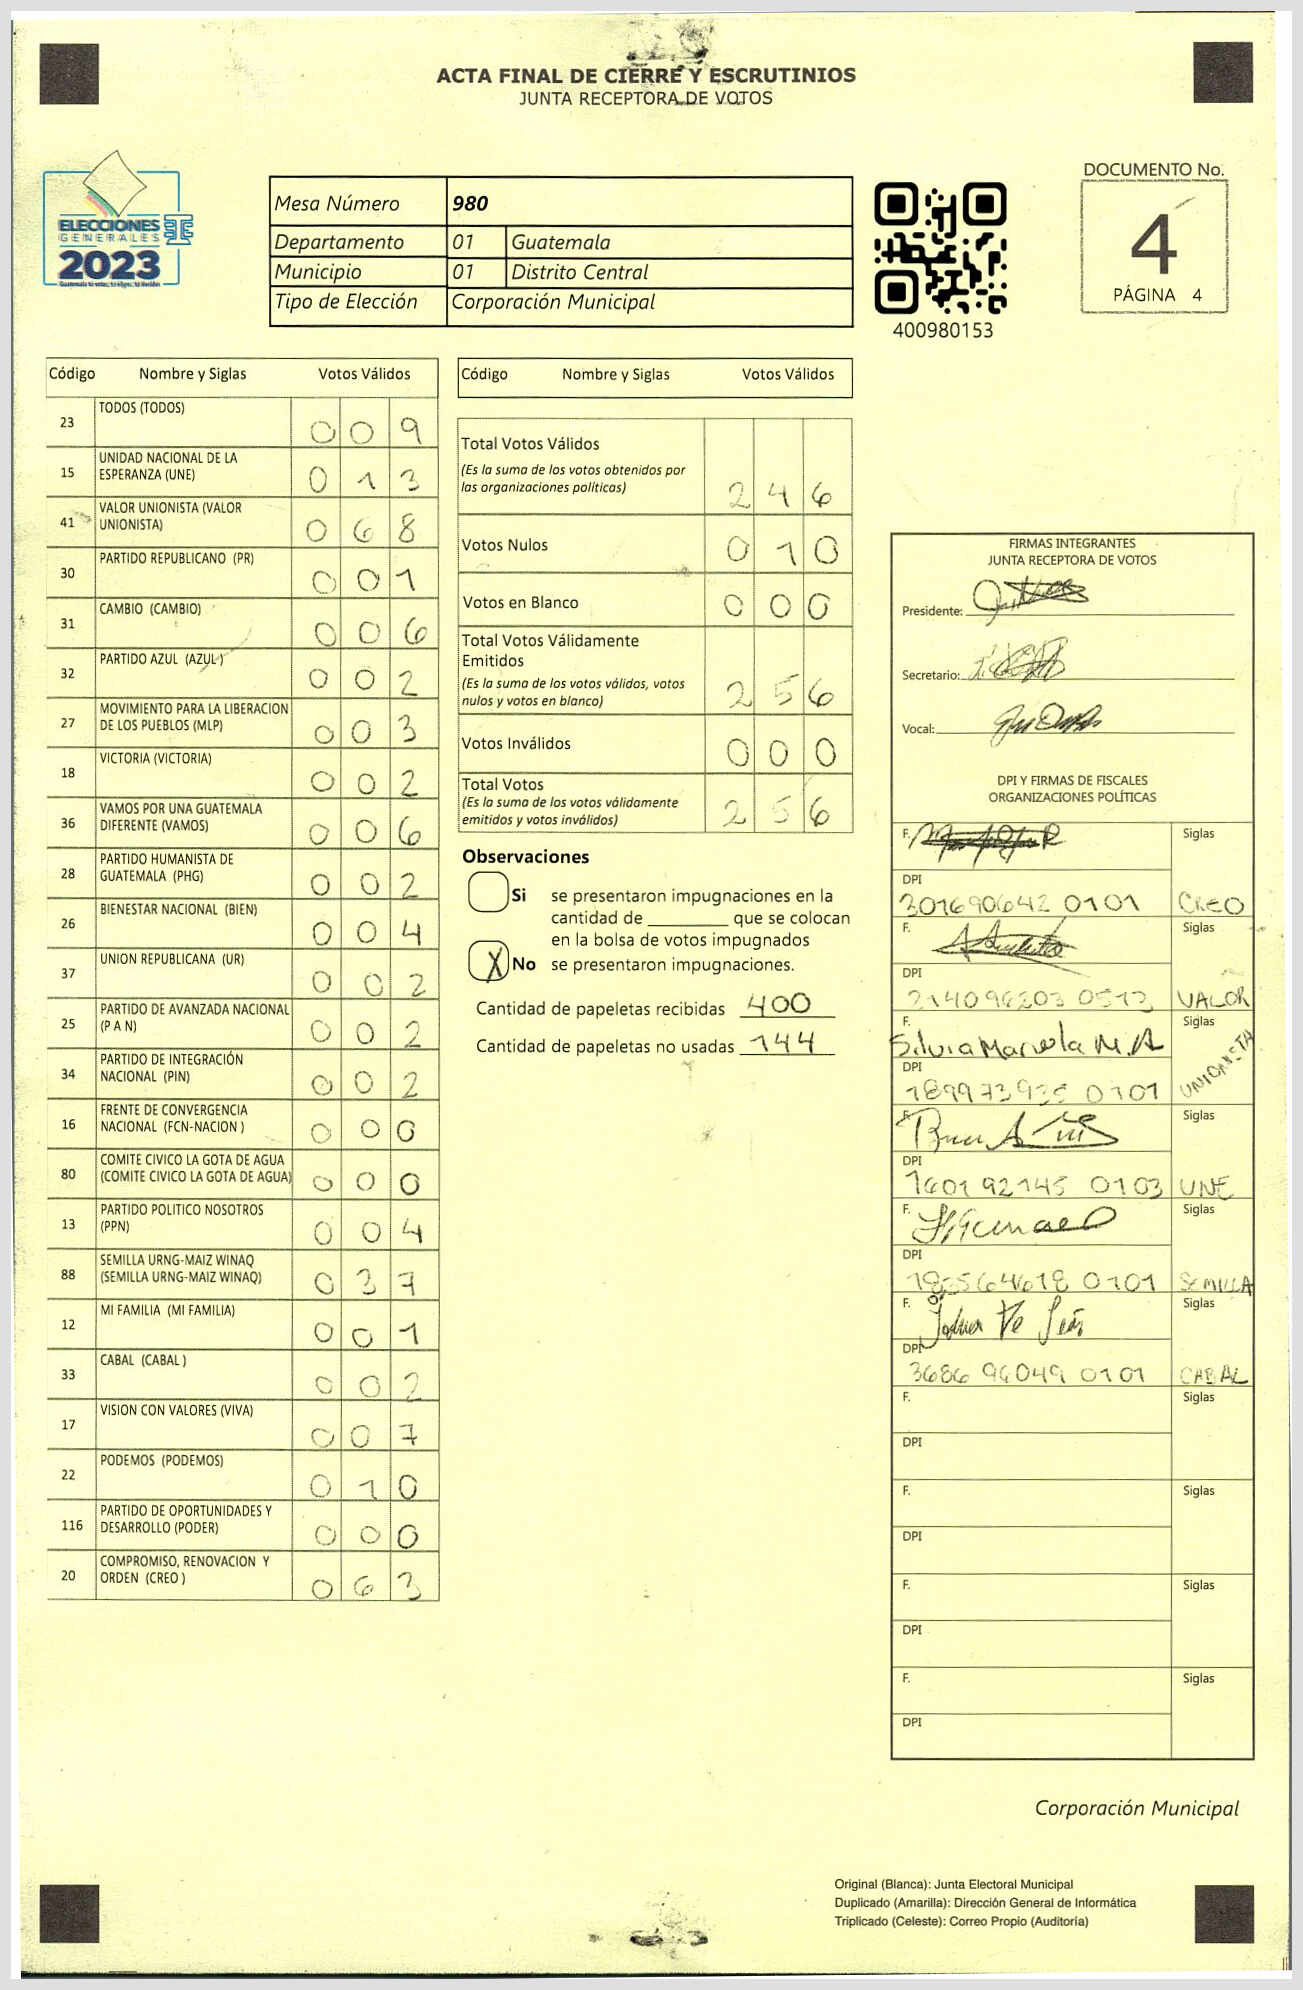 ACTA FINAL DE CIERRE Y ESCRUTINIOS
JUNTA RECEPTORA DE VOTOS
ELECCIONES
GENERALES
2023
Mesa Número 980
Departamento 01 Guatemala
Municipio 01 Distrito Central
Tipo de Elección Corporación Municipal
400980153
DOCUMENTO No.
4
PÁGINA 4
Código Nombre y Siglas Votos Válidos
23 TODOS (TODOS) 0 0 9
15 UNIDAD NACIONAL DE LA
ESPERANZA (UNE) 0 1 3
41 VALOR UNIONISTA (VALOR
UNIONISTA) 0 6 8
30 PARTIDO REPUBLICANO (PR) 0 0 1
31 CAMBIO (CAMBIO) 0 0 6
32 PARTIDO AZUL (AZUL) 0 0 2
27 MOVIMIENTO PARA LA LIBERACION
DE LOS PUEBLOS (MLP) 0 0 3
18 VICTORIA (VICTORIA) 0 0 2
36 VAMOS POR UNA GUATEMALA
DIFERENTE (VAMOS) 0 0 6
28 PARTIDO HUMANISTA DE
GUATEMALA (PHG) 0 0 2
26 BIENESTAR NACIONAL (BIEN) 0 0 4
37 UNION REPUBLICANA (UR) 0 0 2
25 PARTIDO DE AVANZADA NACIONAL
(P A N) 0 0 2
34 PARTIDO DE INTEGRACIÓN
NACIONAL (PIN) 0 0 2
16 FRENTE DE CONVERGENCIA
NACIONAL (FCN-NACION ) 0 0 0
80 COMITE CIVICO LA GOTA DE AGUA
(COMITE CIVICO LA GOTA DE AGUA) 0 0 0
13 PARTIDO POLITICO NOSOTROS
(PPN) 0 0 4
88 SEMILLA URNG-MAIZ WINAQ
(SEMILLA URNG-MAIZ WINAQ) 0 3 7
12 MI FAMILIA (MI FAMILIA) 0 0 1
33 CABAL (CABAL ) 0 0 2
17 VISION CON VALORES (VIVA) 0 0 7
22 PODEMOS (PODEMOS) 0 1 0
116 PARTIDO DE OPORTUNIDADES Y
DESARROLLO (PODER) 0 0 0
20 COMPROMISO, RENOVACION Y
ORDEN (CREO ) 0 6 3
Código Nombre y Siglas Votos Válidos
Total Votos Válidos
(Es la suma de los votos obtenidos por
las organizaciones políticas) 2 4 6
Votos Nulos 0 1 0
Votos en Blanco 0 0 0
Total Votos Válidamente
Emitidos
(Es la suma de los votos válidos, votos
nulos y votos en blanco) 2 5 6
Votos Inválidos 0 0 0
Total Votos
(Es la suma de los votos válidamente
emitidos y votos inválidos) 2 5 6
Observaciones
Si se presentaron impugnaciones en la
cantidad de ________ que se colocan
en la bolsa de votos impugnados
X No se presentaron impugnaciones.
Cantidad de papeletas recibidas 400
Cantidad de papeletas no usadas 144
FIRMAS INTEGRANTES
JUNTA RECEPTORA DE VOTOS
Presidente:
Secretario:
Vocal:
DPI Y FIRMAS DE FISCALES
ORGANIZACIONES POLÍTICAS
F. Siglas
DPI
301690642 0101 CREO
F. Siglas
DPI
214096203 0513 VALOR
F. Siglas
Silvia Mariela M. A UNIONISTA
DPI
189973935 0101
F. Siglas
DPI
1601 92145 0103 UNE
F. Siglas
DPI
185564618 0101 SEMILLA
F. Siglas
DPI
3686 96049 0101 CABAL
F. Siglas
DPI
F. Siglas
DPI
F. Siglas
DPI
F. Siglas
DPI
Corporación Municipal
Original (Blanca): Junta Electoral Municipal
Duplicado (Amarilla): Dirección General de Informática
Triplicado (Celeste): Correo Propio (Auditoría)